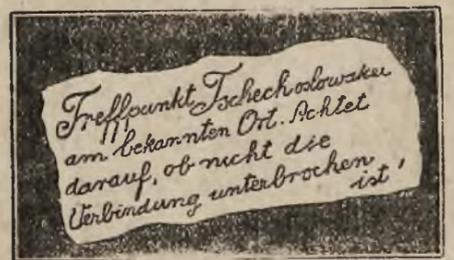 Treffpunkt Tschechoslowakei
am bekannten Ort. Achtet
darauf, ob nicht die
Verbindung unterbrochen
ist!